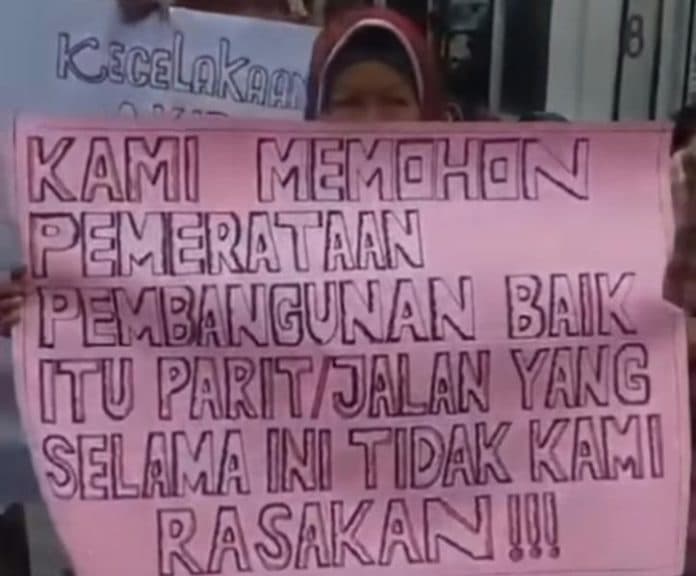 KECELAKAAN
8
KAMI MEMOHON
PEMERATAAN
PEMBANGUNAN BAIK
ITU PARIT/JALAN YANG
SELAMA INI TIDAK KAMI
RASAKAN!!!